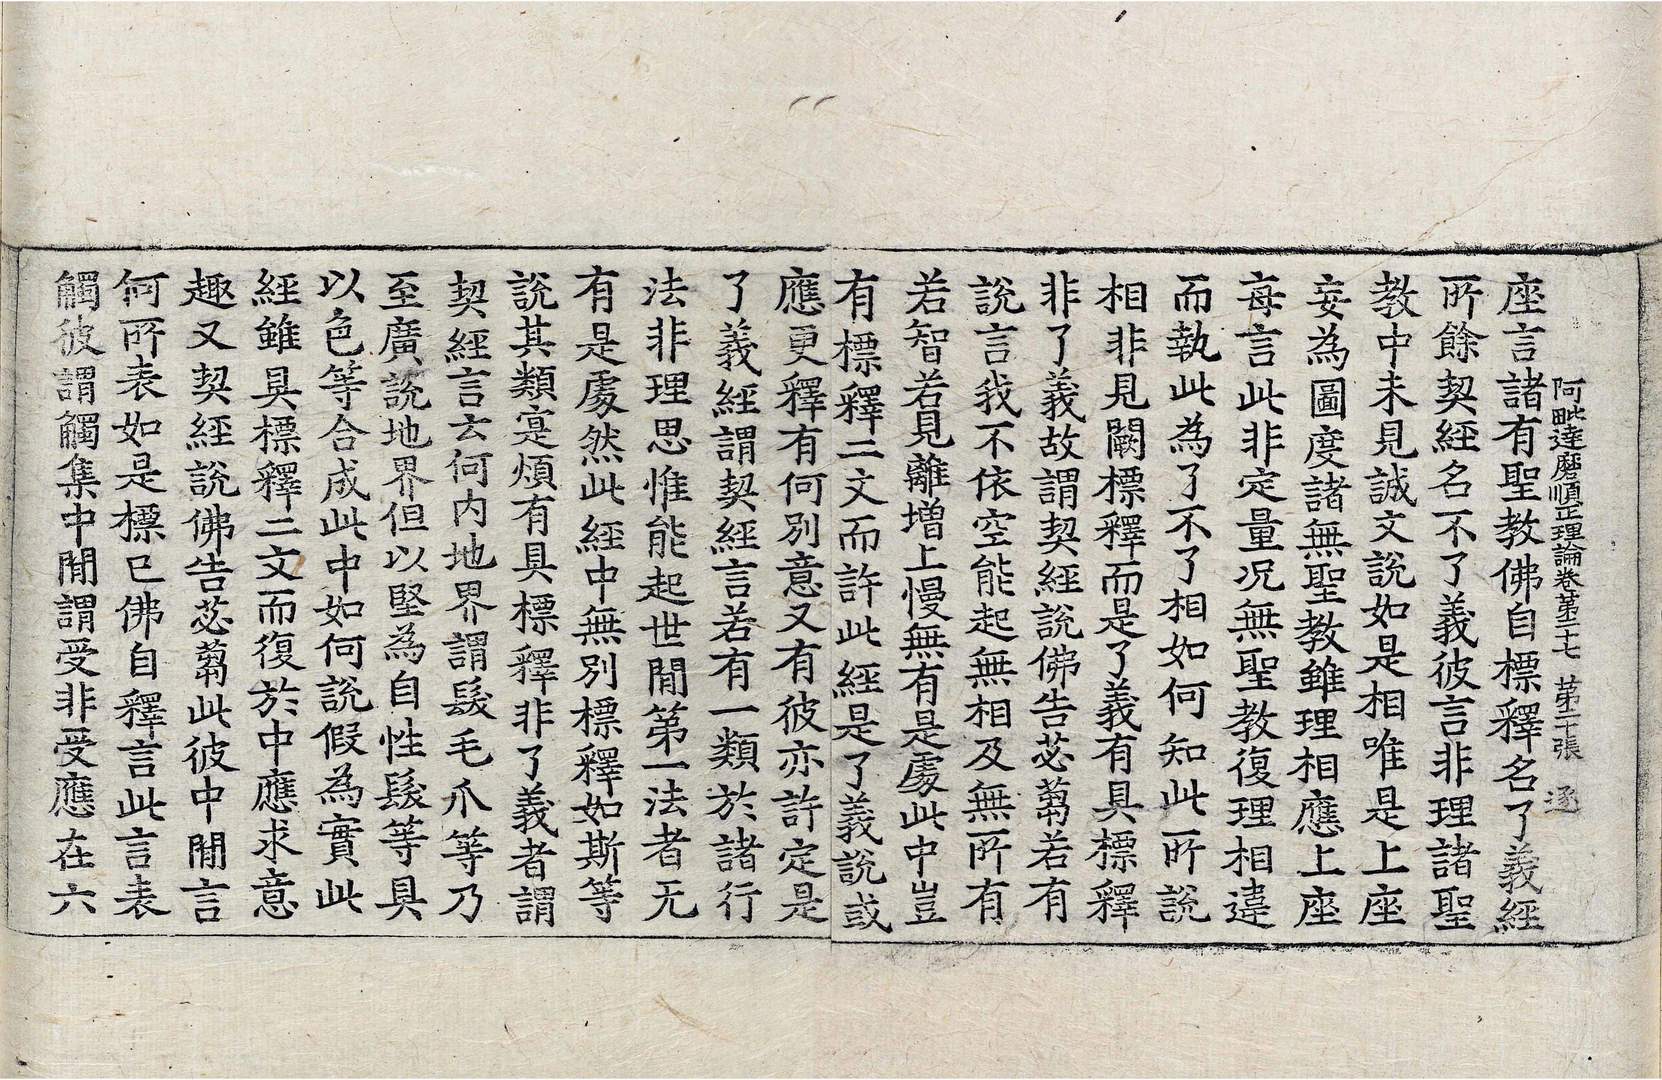 阿毗達磨順正理論卷苐二十七 苐二十張 逐
座言諸有聖教佛自標釋名了義經
所餘契經名不了義彼言非理諸聖
教中未見誠文說如是相唯是上座
妄為圖度諸無聖教雖理相應上座
每言此非定量况無聖教復理相違
而執此為了不了相如何知此所說
相非見闕標釋而是了義有具標釋
非了義故謂契經說佛告苾蒭若有
說言我不依空能起無相及無所有
若智若見離增上慢無有是處此中豈
有標釋二文而許此經是了義說或
應更釋有何別意又有彼亦許定是
了義經謂契經言若有一類於諸行
法非理思惟能起世閒第一法者无
有是處然此經中無別標釋如斯等
說其類寔煩有具標釋非了義者謂
契經言云何內地界謂髮毛爪等乃
至廣說地界但以堅為自性髮等具
以色等合成此中如何說假為實此
經雖具標釋二文而復於中應求意
趣又契經說佛告苾蒭此彼中閒言
何所表如是標已佛自釋言此言表
觸彼謂觸集中閒謂受非受應在六